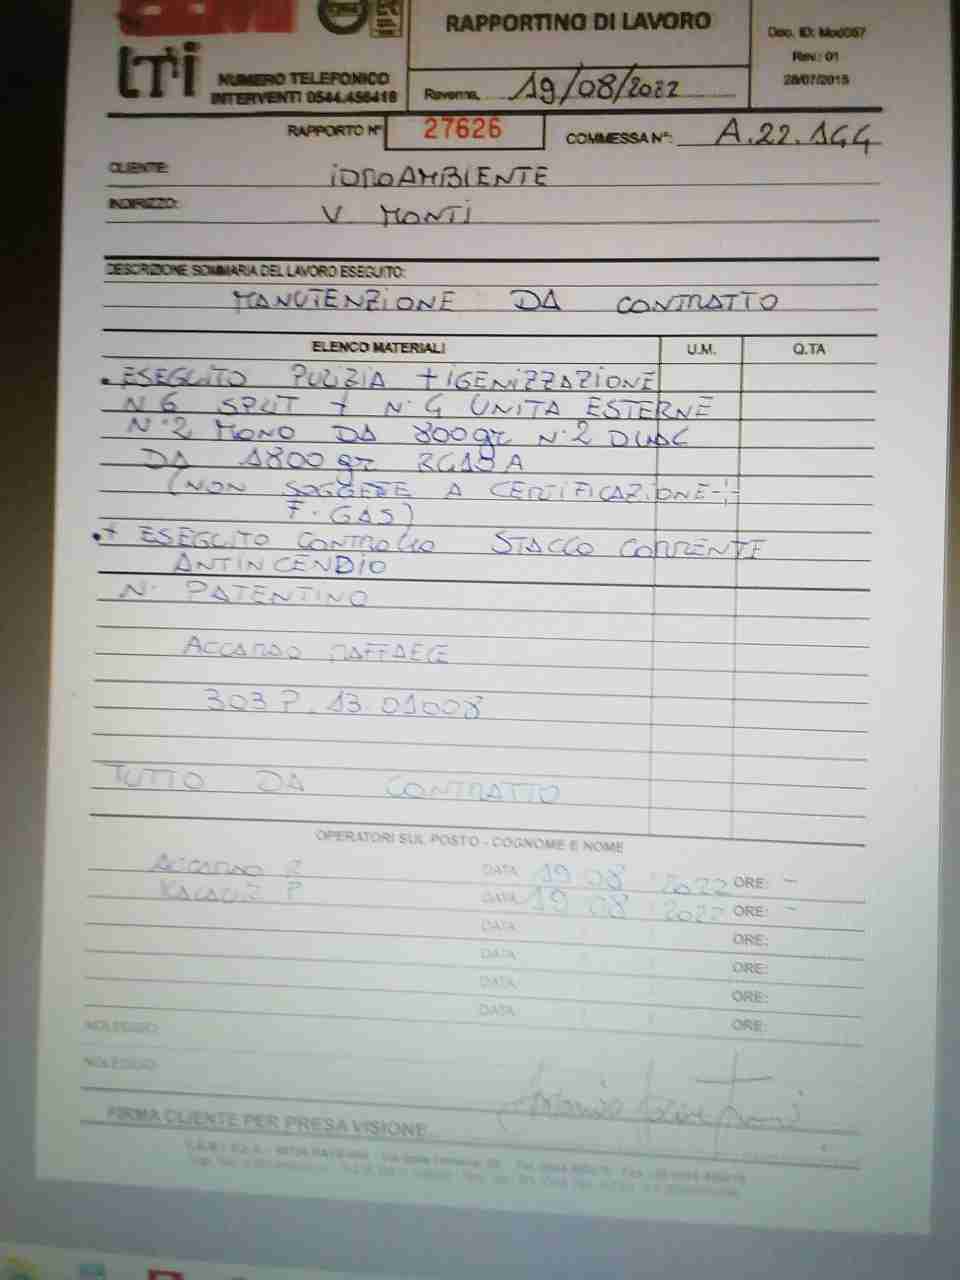 RAPPORTINO DI LAVORO
Doc. ID: Mod067
Rev.: 01
28/07/2015
NUMERO TELEFONICO
INTERVENTI 0544.456418
Ravenna, 19/08/2022
RAPPORTO N° 27626
COMMESSA N°: A.22.144
CLIENTE: IDROAMBIENTE
INDIRIZZO: V. MONTI
DESCRIZIONE SOMMARIA DEL LAVORO ESEGUITO:
MANUTENZIONE DA CONTRATTO
ELENCO MATERIALI U.M. Q.TA
• ESEGUITO PULIZIA + IGENIZZAZIONE
N 6 SPLIT + N. 4 UNITA ESTERNE
N. 2 MONO DA 800gr N. 2 DUAL
DA 1800 gr R410A
(NON SOGGETE A CERTIFICAZIONE
F. GAS)
• + ESEGUITO CONTROLLO STACCO CORRENTE
ANTINCENDIO
N. PATENTINO
ACCARDO RAFFAELE
303P.13.01008
TUTTO DA CONTRATTO
OPERATORI SUL POSTO - COGNOME E NOME
ACCARDO R DATA 19 08 2022 ORE: -
DATA 19 08 2022 ORE: -
DATA ORE:
DATA ORE:
DATA ORE:
DATA ORE:
NOLEGGIO:
NOLEGGIO:
FIRMA CLIENTE PER PRESA VISIONE